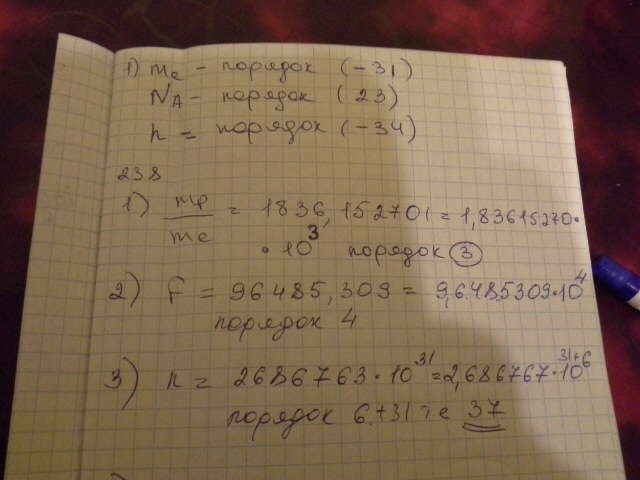 1) me - порядок (-31)
NA - порядок (23)
h = порядок (-34)
238
1) mp/me = 1836,152701 = 1,83615270·
· 10^3 порядок 3
2) F = 96485,309 = 9,6485309·10^4
порядок 4
3) n = 2686763·10^31 = 2,686767·10^31+6
порядок 6+31 т е 37